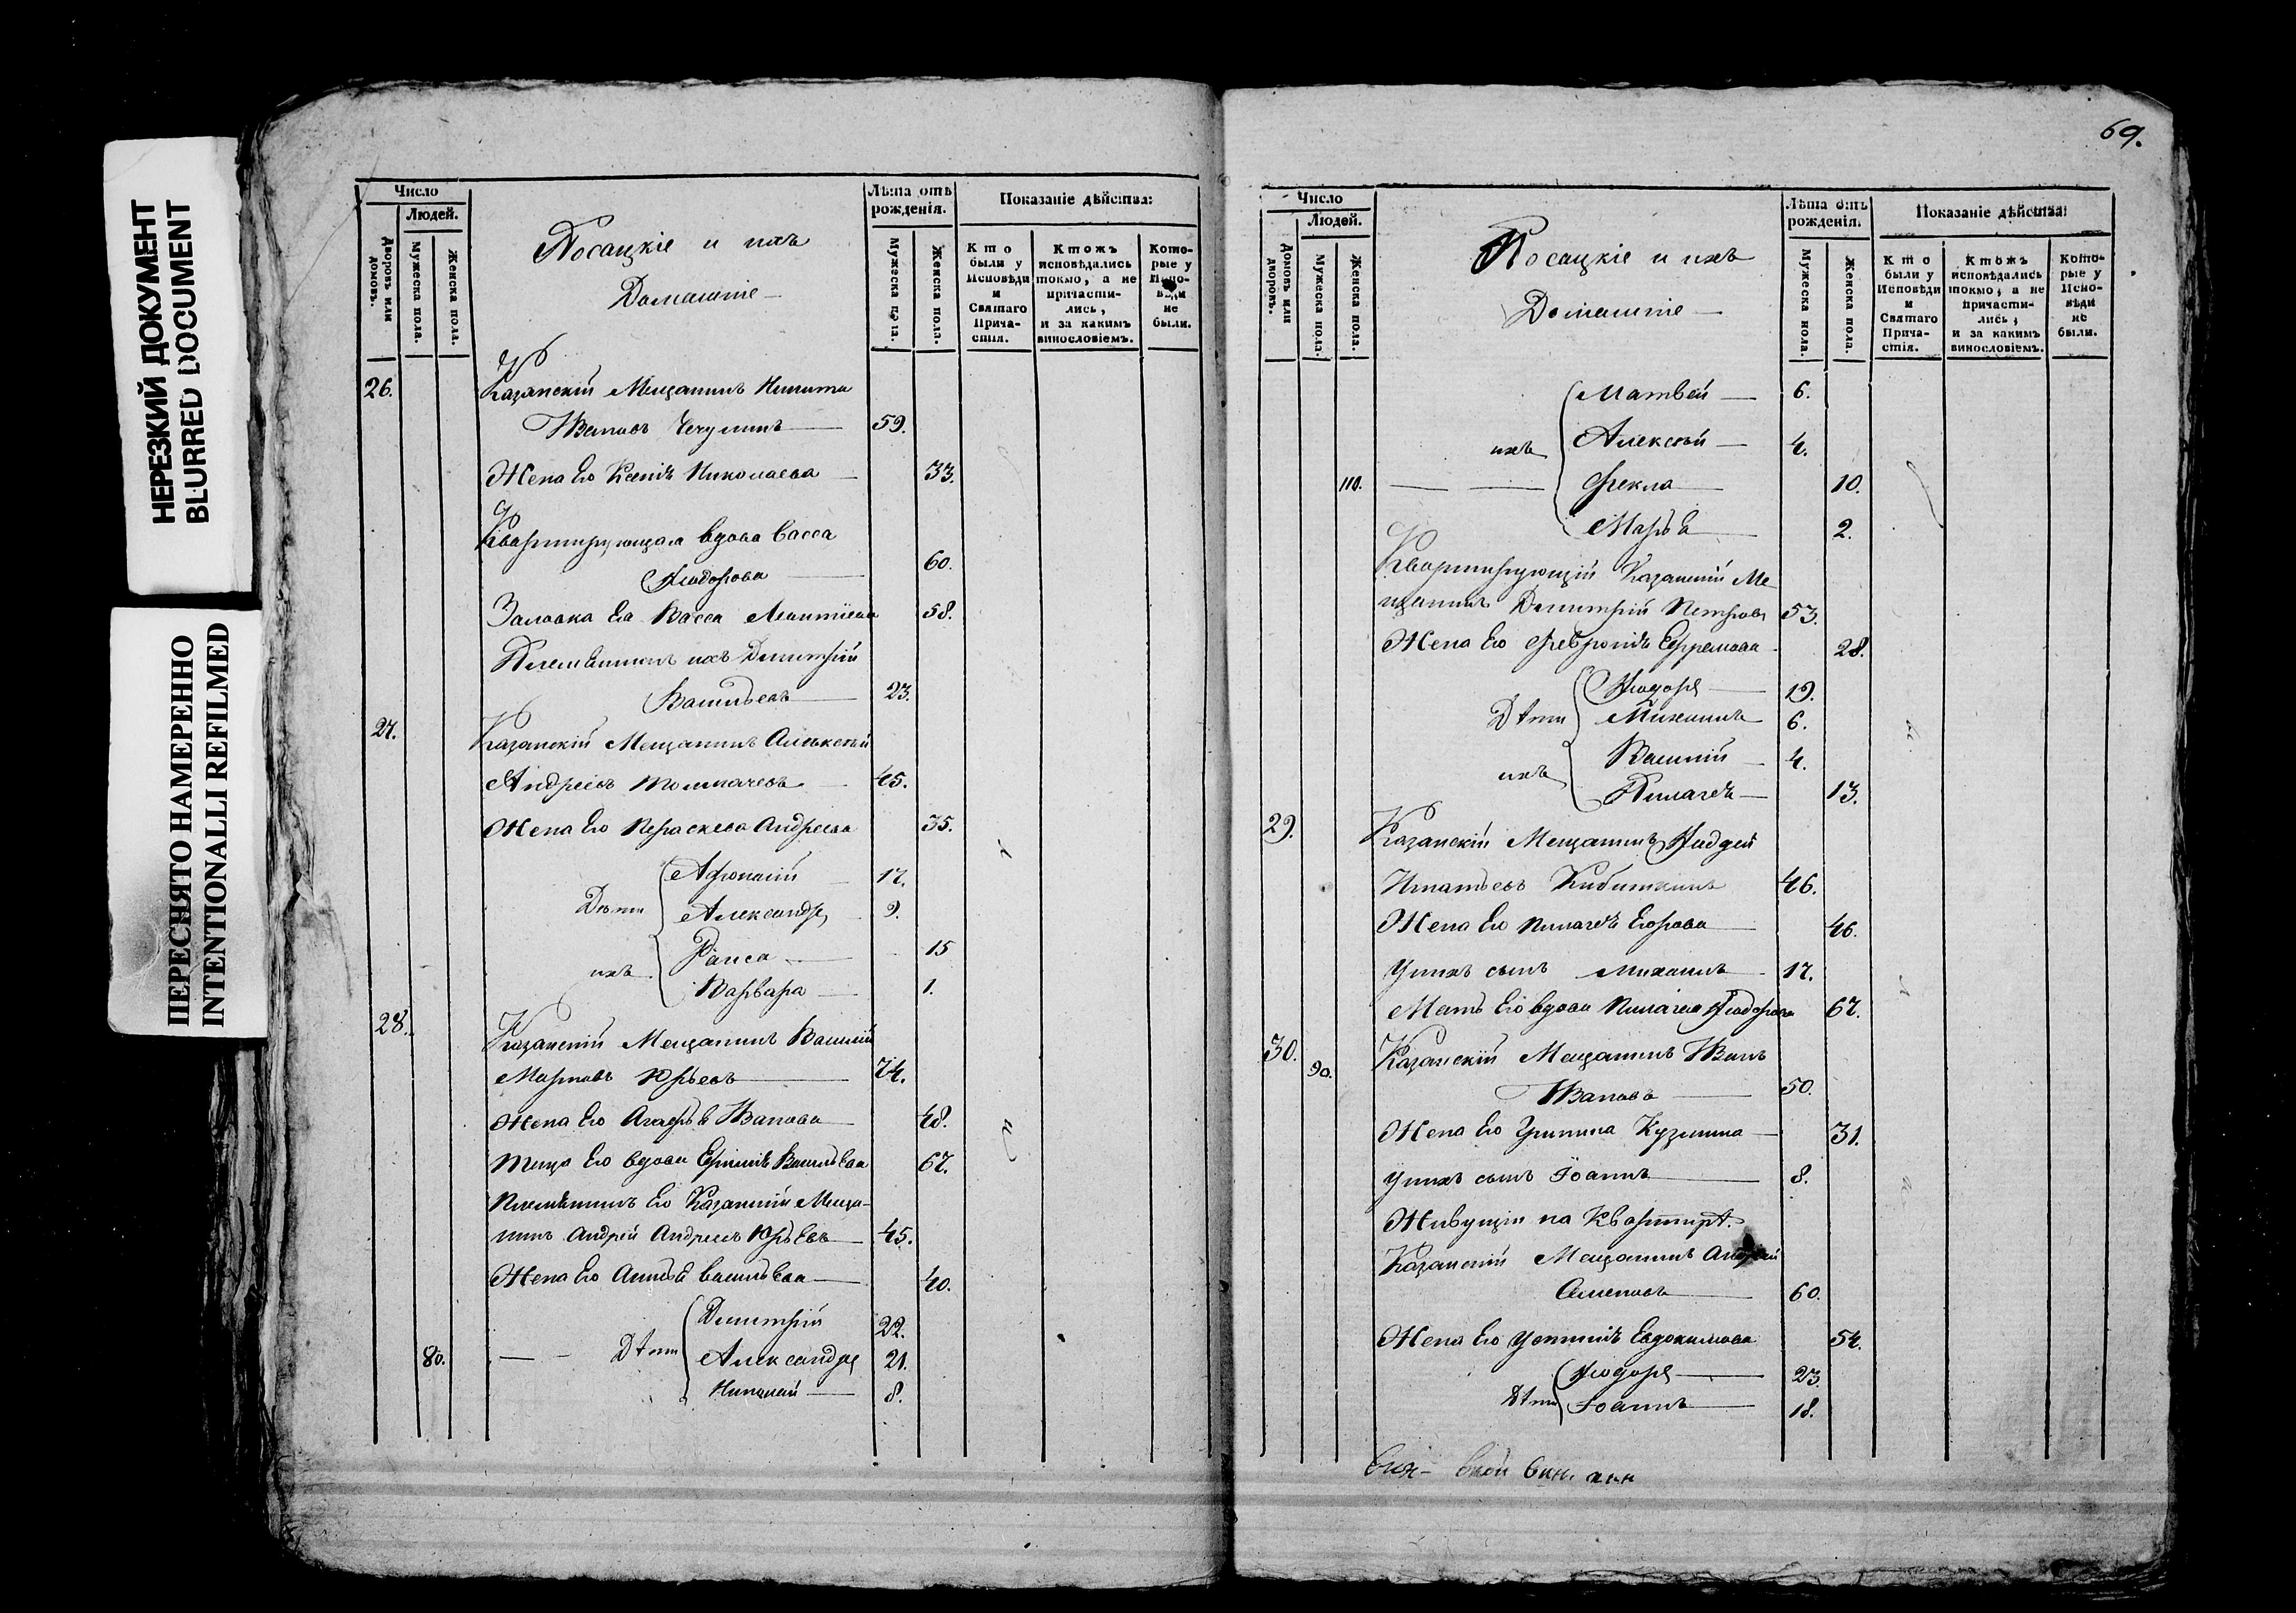 НЕРЕЗКИЙ ДОКУМЕНТ
BLURRED DOCUMENT
ПЕРЕСНЯТО НАМЕРЕННО
INTENTIONALLI REFILMED
Число
Людей.
Дворовъ или домовъ.
Мужеска пола.
Женска пола.
Посацкіе и ихъ
Домашніе
Лѣта отъ рожденія.
Мужеска пола.
Женска пола.
Показаніе дѣйства:
Кто были у Исповѣди и Святаго Причастія.
Ктожъ исповѣдались токмо, а не причастились, и за какимъ винословіемъ.
Которые у Исповѣди не были.
26. Казанскій Мещанинъ Никита
Ивановъ Чечулинъ 59.
Жена Его Ксенія Николаева 33.
Квартирующая вдова Васса
Ѳиодорова 60.
Заловка Ея Васса Леонтіева 58.
Племянникъ ихъ Димитрій
Васильевъ 23.
27. Казанскій Мещанинъ Алексѣй
Андреевъ Толмачевъ 45.
Жена Его Параскева Андреева 35.
Дѣти ихъ
Афонасій 17.
Александръ 9.
Раиса 15
Варвара 1.
28. Казанскій Мещанинъ Василій
Марковъ Юрьевъ 74.
Жена Его Агафья Иванова 48.
Теща Его вдова Васильева 67.
Племянникъ Его Казанскій Меща-
нинъ Андрей Андреевъ Юрьевъ 45.
Жена Его Васильева 40.
Дѣти
Димитрій 22.
80. Александръ 21.
Николай 8.
69.
Число
Людей.
Домовъ или дворовъ.
Мужеска пола.
Женска пола.
Посацкіе и ихъ
Домашніе
Лѣта отъ рожденія.
Мужеска пола.
Женска пола.
Показаніе дѣйства:
Кто были у Исповѣди и Святаго Причастія.
Ктожъ исповѣдались токмо, а не причастились, и за какимъ винословіемъ.
Которые у Исповѣди не были.
ихъ
Матвей 6.
Алексѣй 4.
110. Фекла 10.
Марья 2.
Квартирующій Казанскій Ме-
щанинъ Димитрій Петровъ 53.
Жена Его Февронія Ефремова 28.
Дѣти ихъ
Ѳиодоръ 19.
Михаилъ 6.
Василій 4.
Пилагея 13.
29. Казанскій Мещанинъ Ѳаддей
Игнатьевъ Кибиткинъ 46.
Жена Его Пилагея Егорова 46.
У нихъ сынъ Михаилъ 17.
Мать Его вдова Пилагея Ѳиодорова 67.
30. Казанскій Мещанинъ Иванъ
90. Ивановъ 50.
Жена Его Устина Кузмина 31.
У нихъ сынъ Іоаннъ 8.
Живущіи на Квартирѣ
Казанскій Мещанинъ Андрей
Семеновъ 60.
Жена Его Евдокимова 54.
Дѣти
Ѳиодоръ 23.
Іоаннъ 18.